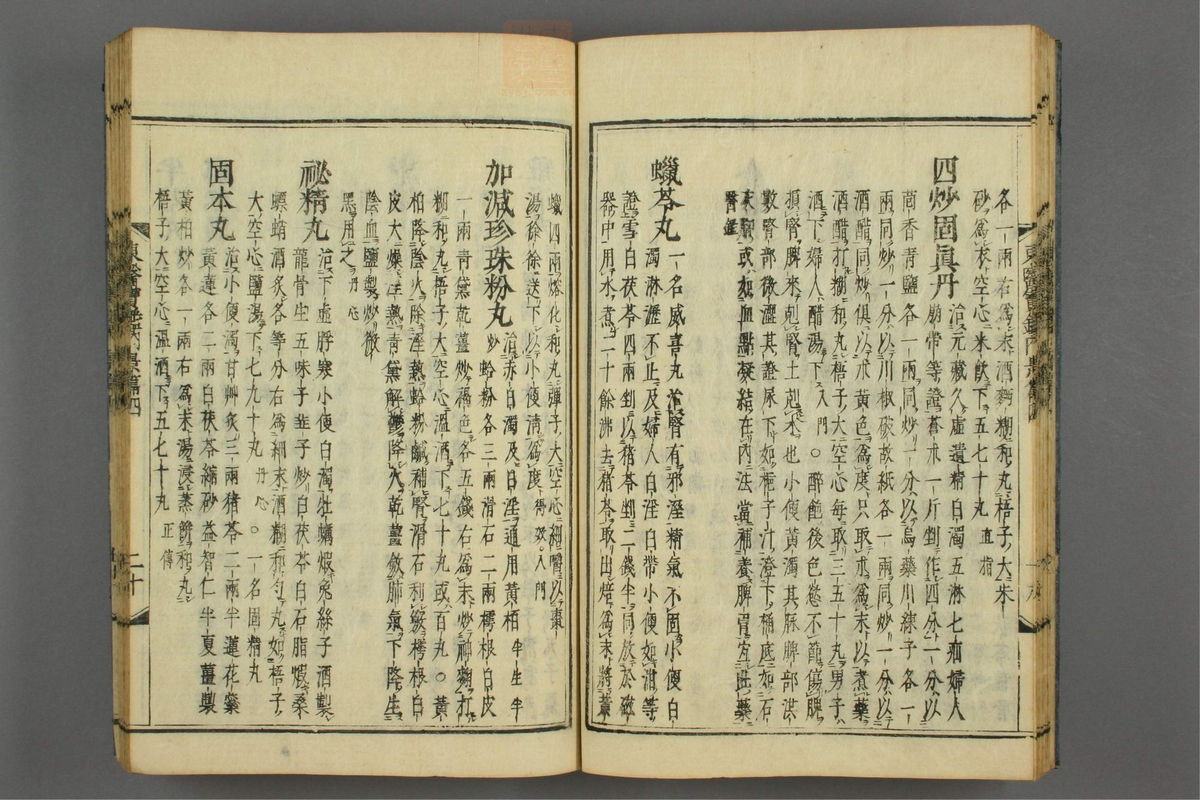 各一兩右爲末酒麪糊和丸梧子大朱
砂爲衣空心米飮下五七十丸 直指
四炒固眞丹 治元藏久虛遺精白濁五淋七疝婦人
崩帶等證蒼朮一斤剉作四分一分以
茴香靑鹽各一兩同炒一分以烏藥川練子各一
兩同炒一分以川椒破故紙各一兩同炒一分以
酒醋同炒俱以朮黃色爲度只取朮爲末以煮藥
酒醋打糊和丸梧子大空心每取三五十丸男子
酒下婦人醋湯下 入門 ○醉飽後色慾不節傷脾
損腎脾來剋腎土剋水也小便黃濁其脈脾部洪
數腎部微澀其證尿下如梔子汁澄下桶底如石
末糊或如血點凝結在內法當補養脾胃宜此藥
醫鑑
蠟苓丸 一名威喜丸治腎有邪溼精氣不固小便白
濁淋瀝不止及婦人白淫白帶小便如泔等
證雪白茯苓四兩剉以猪苓剉二錢半同放於磁
器中用水煮二十餘沸去猪苓取出焙爲末將黃
蠟四兩熔化和丸彈子大空心細嚼以棗
湯徐徐送下以小便淸爲度 得效○入門
加減珍珠粉丸 治赤白濁及白淫通用黃栢半生半
炒蛤粉各三兩滑石二兩樗根白皮
一兩靑黛乾薑炒褐色各五錢右爲末炒神麴打
糊和丸梧子大空心溫酒下七十丸或百丸○黃
柏降陰火除溼熱蛤粉鹹補腎滑石利竅樗根白
皮大燥溼熱靑黛解鬱降火乾薑斂肺氣下降生
陰血鹽製炒微
黑用之 丹心
祕精丸 治下虛脬寒小便白濁牡蠣煆兔絲子酒製
龍骨生五味子韭子炒白茯苓白石脂煆桑
螵蛸酒炙各等分右爲細末酒糊和勻丸如梧子
大空心鹽湯下七九十丸 丹心 ○一名固精丸
固本丸 治小便濁甘艸炙三兩猪苓二兩半蓮花蘂
黃蓮各二兩白茯苓縮砂益智仁半夏薑製
黃柏炒各一兩右爲末湯浸蒸餠和丸
梧子大空心溫酒下五七十丸 正傳
二十